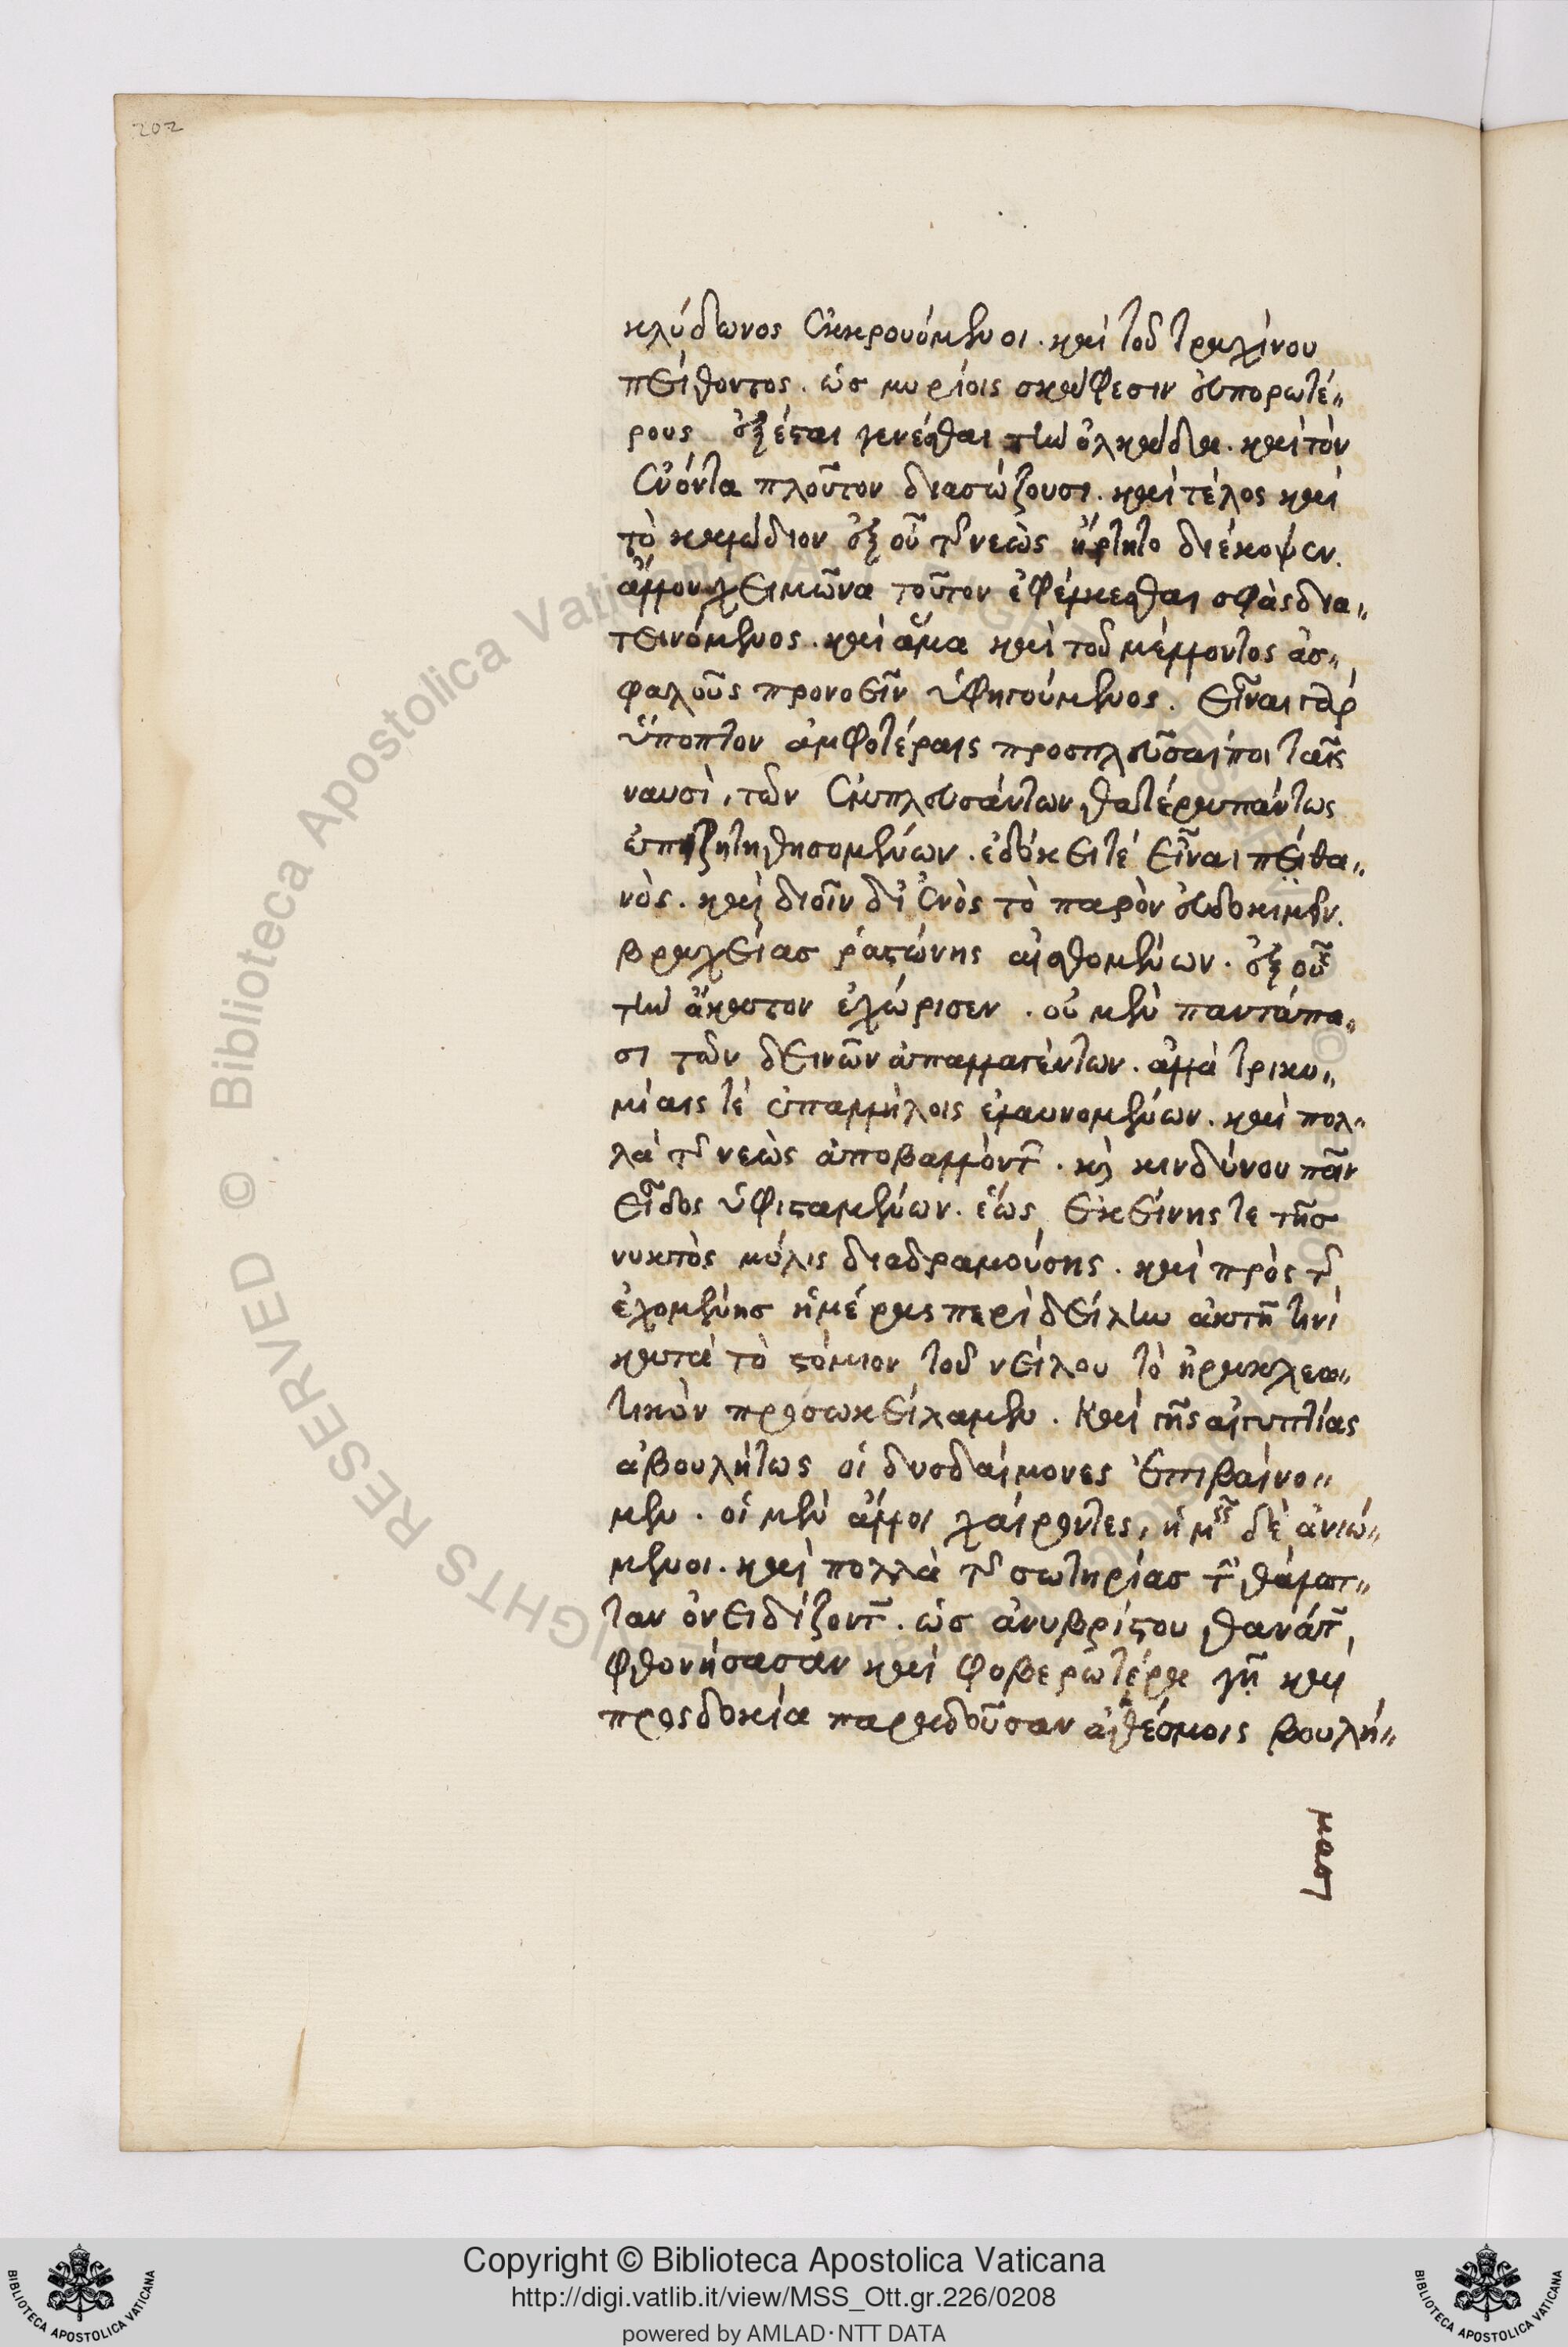 202
κλύδωνος ἐκκρουόμενοι. καὶ τοῦ τραχίνου
πείθοντος. ὡσ μυρίοις σκάφεσιν εὐπορωτέ〃
ρους ἐξέσται γενέσθαι τὴν ὁλκάδα. καὶ τὸν
ἐνόντα πλοῦτον διασώζουσι. καὶ τέλος καὶ
τὸ καλώδιον ἐξ οὗ τῆς νεὼς ἤρτητο διέκοψεν.
ἄλλον χειμῶνα τοῦτον ἐφέλκεσθαι σφὰς δια〃
τεινόμενος. καὶ ἅμα καὶ τοῦ μέλλοντος ἀσ〃
φαλοῦς προνοεῖν ὑφηγούμενος. εἶναι γὰρ
ὕποπτον ἀμφοτέραις προσπλεῦσαί ποι ταῖς
ναυσὶ, τῶν ἐμπλευσάντων θατέρα πάντως
ἐπιζητηθησομένων. ἐδόκει τέ εἶναι πειθα〃
νὸς. καὶ δυοῖν δι' ἑνὸς τὸ παρὸν εὐδοκίμειν.
βραχείασ ῥαστώνης αἰσθομένων. ἐξ οὗ
τὴν ἄκατον ἐχώρισεν. οὐ μὲν παντάπα〃
σι τῶν δεινῶν ἀπαλλαγέντων. ἀλλὰ τρικυ〃
μίαις τὲ ἐπαλλήλοις ἐλαυνομένων. καὶ πολ〃
λὰ τῆς νεὼς ἀποβαλλόντων. καὶ κινδύνου πᾶν
εἶδος ὑφισταμένων. ἕως ἐκείνης τε τῆσ
νυκτὸς μόλις διαδραμούσης. καὶ πρὸς τῆς
ἐχομένησ ἡμέρας περὶ δείλην ἀκτῇ τινὶ
κατὰ τὸ στόμιον τοῦ νείλου τὸ ἡρακλεω〃
τικὸν προσωκείλαμεν. καὶ γῆς αἰγυπτίας
ἀβουλήτως οἱ δυσδαίμονες ἐπιβαίνο〃
μεν. οἱ μὲν ἄλλοι χαίροντες, ἡμεῖς δὲ ἀνιώ〃
μενοι. καὶ πολλὰ τῆς σωτηρίασ τὴν θάλατ〃
ταν ὀνειδίζοντες. ὡσ ἀνυβρίστου θανάτου
φθονήσασαν καὶ φοβερωτέρα γῇ καὶ
προσδοκία παραδοῦσαν ἀθέσμοις βουλή〃
μασι
Copyright © Biblioteca Apostolica Vaticana
http://digi.vatlib.it/view/MSS_Ott.gr.226/0208
powered by AMLAD·NTT DATA